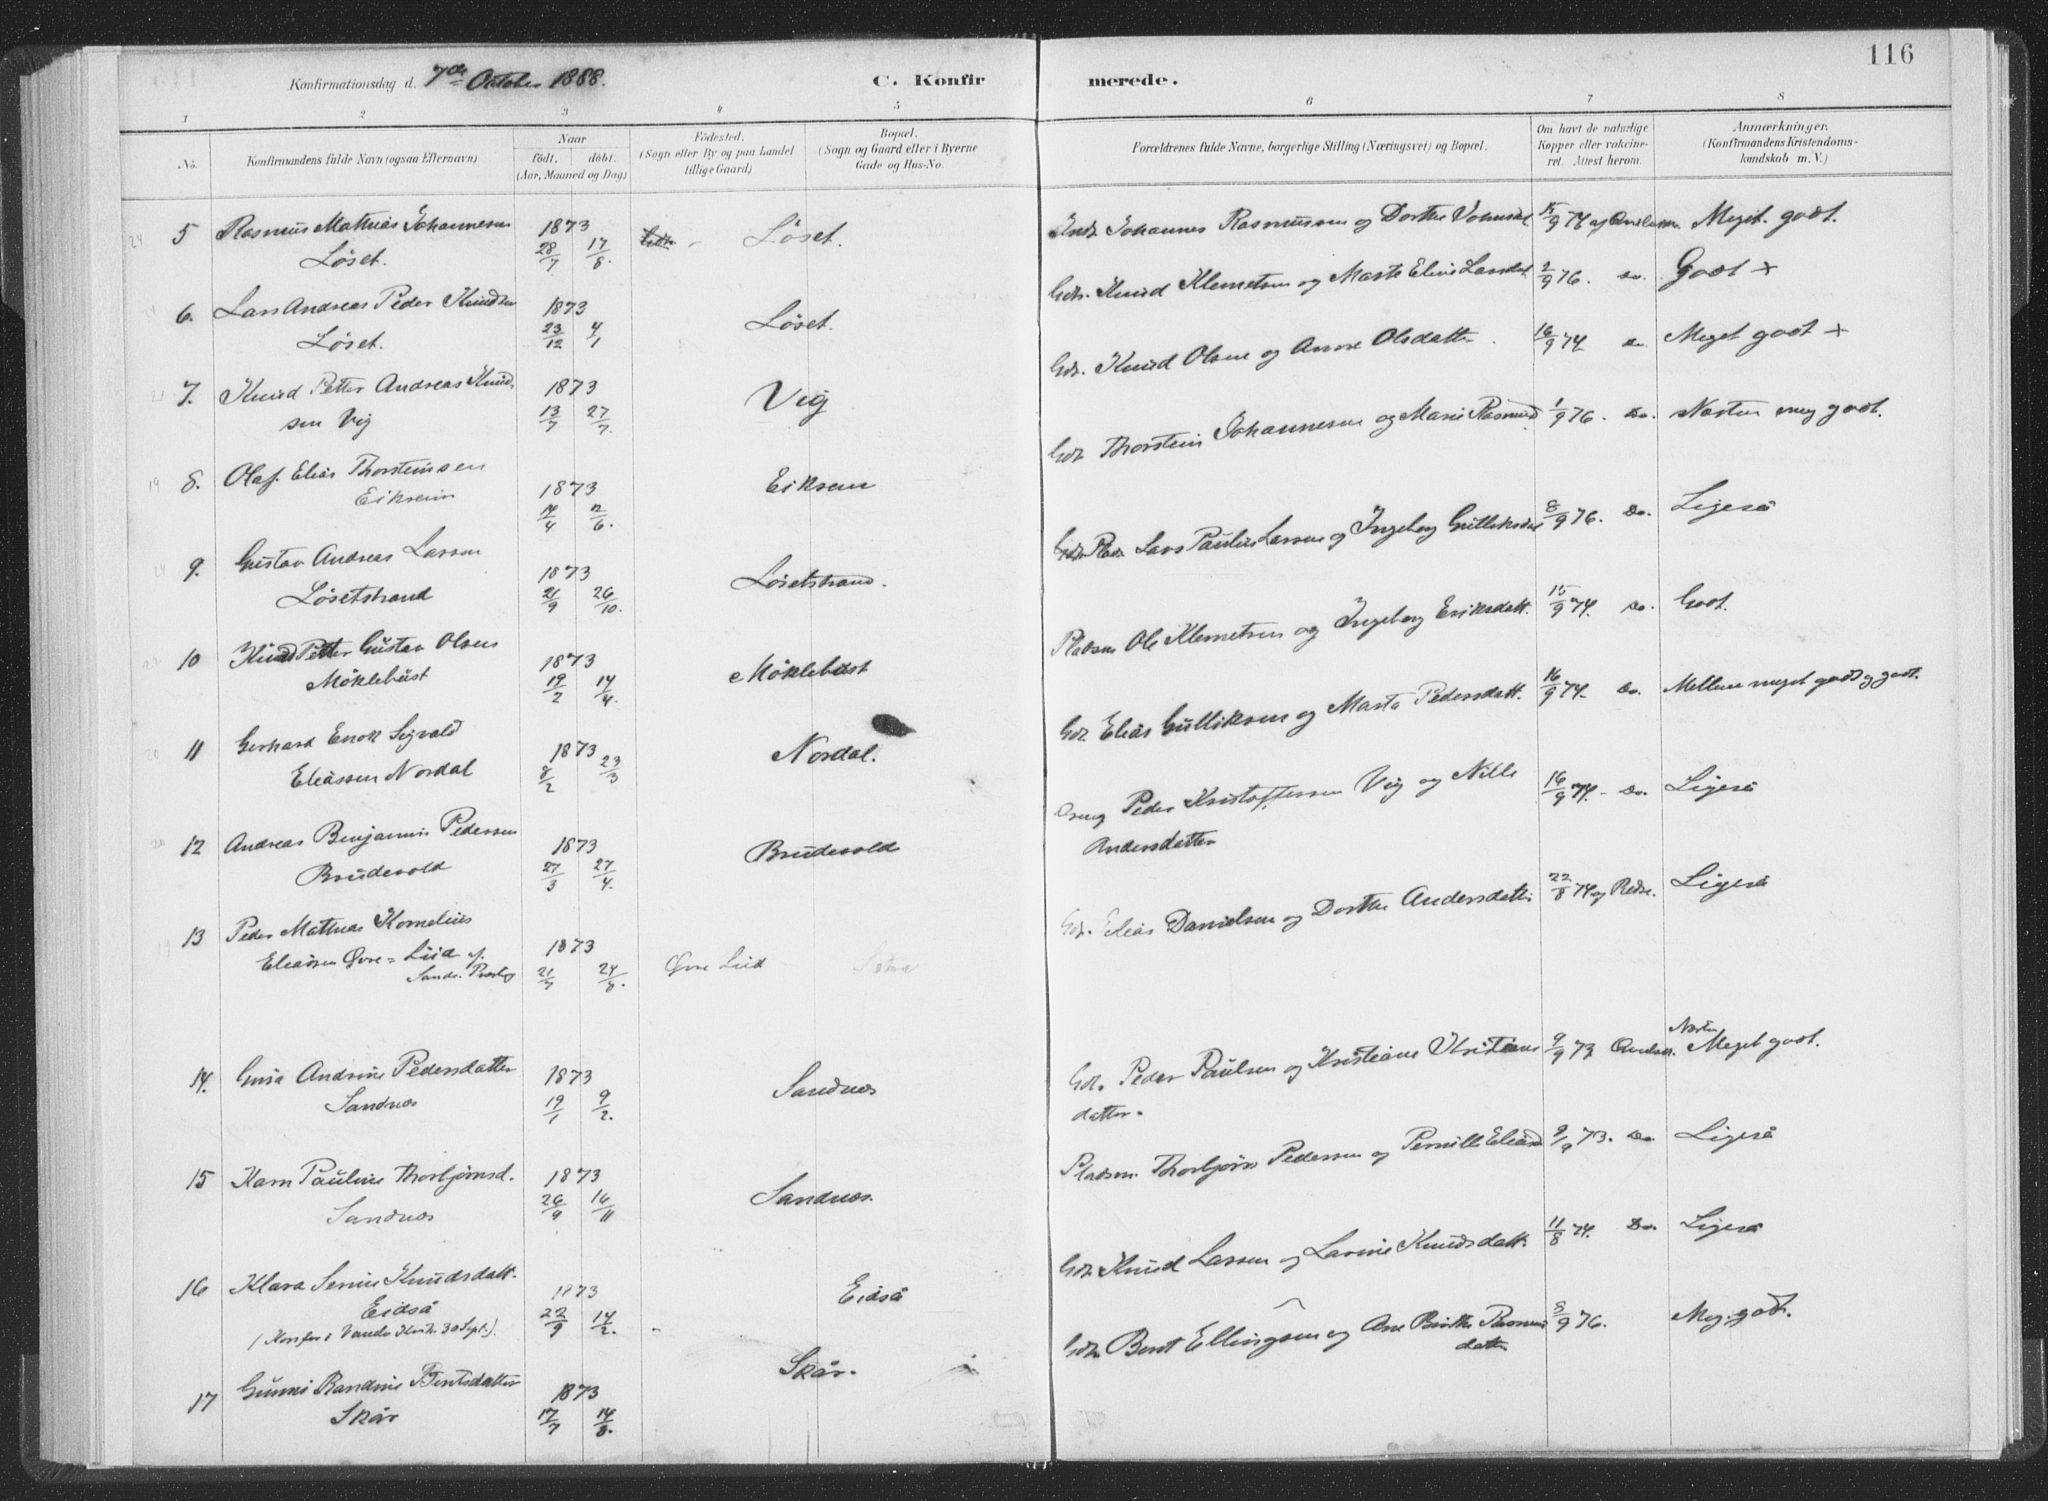 116
Konfirmationsdag d. 7de October 1888.
C. Konfirmerede.
1 2 3 4 5 6 7 8
No. Konfirmandens fulde Navn (ogsaa Efternavn) Naar født. døbt. (Aar, Maaned og Dag) Fødested. (Sogn eller By og paa Landet tillige Gaard) Bopæl. (Sogn og Gaard eller i Byerne Gade og Hus-No. Forældrenes fulde Navne, borgerlige Stilling (Næringsvei) og Bopæl. Om havt de naturlige Kopper eller vakcineret. Attest herom. Anmærkninger. (Konfirmandens Kristendomskundskab m. V.)
5 Rasmus Mathias Johannesen 1873 Løset. Johannes Rasmussen og Dorthe 15/9 74 Meget godt.
Løset. 28/7 17/8
6. Lars Andreas Peder Knudsen 1873 Løset. Gdr. Knud Klemetsen og Marte Eline Larsdat 2/9 76. Do. Godt +
Løset. 23/12 4/1
7. Knud Petter Andreas Knud- 1873 Vig Gdr. Knud Olsen og Anne Olsdatter 16/9 74 Do. Meget godt +
sen Vig 13/7 27/7.
8. Olaf Elias Thorsteinsen 1873 Eiksem Gdr. Thorstein Johannesen og Marie Rasmusd. 1/9 76. Do. Næsten meg godt.
Eiksem 14/4 2/6.
9. Gustav Andreas Larsen 1873 Løsetstrand. Lars Paulus Larsen og Ingeborg Gulliksdat 8/9 76. Do. Ligeså
Løsetstrand 21/9 26/10.
10 Knud Petter Gustav Olsen 1873 Møklebust Pladsm. Ole Klemetsen og Ingeborg Eriksdatt. 15/9 74. Do. Godt.
Møklebust 19/2 14/4.
11 Gerhard Enok Sigvald 1873 Nordal. Gdr. Elias Gulliksen og Marta Pedersdatt. 16/9 74. Do. Mellem meget godt og godt.
Eliassen Nordal 8/2 23/3
12 Andreas Benjamin Pedersen 1873 Brudevold Peder Kristoffersen Vig og Nille 16/9 74. Do. Ligeså
Brudevold 27/3 27/4. Andersdatter
13 Peder Mathias Kornelius 1873 Øvre Liid Gdr. Elias Danielsen og Dorthe Andersdatt. 22/8 74 Ligeså
Eliassen Øvre-Liid af 21/7 24/8.
Sande Præstegj
14. Gusa Andrine Pedersdatter 1873 Sandnæs Gdr. Peder Paulsen og Kristiane Kristians 9/9 73 Næsten Meget godt.
Sandnæs 19/1 9/2. datter.
15 Karn Pauline Thorbjørnsd. 1873 Sandnæs. Pladsm. Thorbjørn Pedersen og Pernille Eliasd 9/9 73. Do Ligeså
Sandnæs 26/9 16/11
16 Klara Serine Knudsdatt. 1873 Eidså Gdr. Knud Larsen og Lavine Knudsdatt. 11/8 74. Do. Ligeså
Eidså 22/9 14/2.
(Konf. i Vands Kirke 30 Sept.).
17 Gunni Randine Bentsdatter 1873 Skår. Gdr. Bent Ellingsen og Ane Birthe Rasmus 8/9 76. Meg. godt.
Skår 17/7 14/8. datter